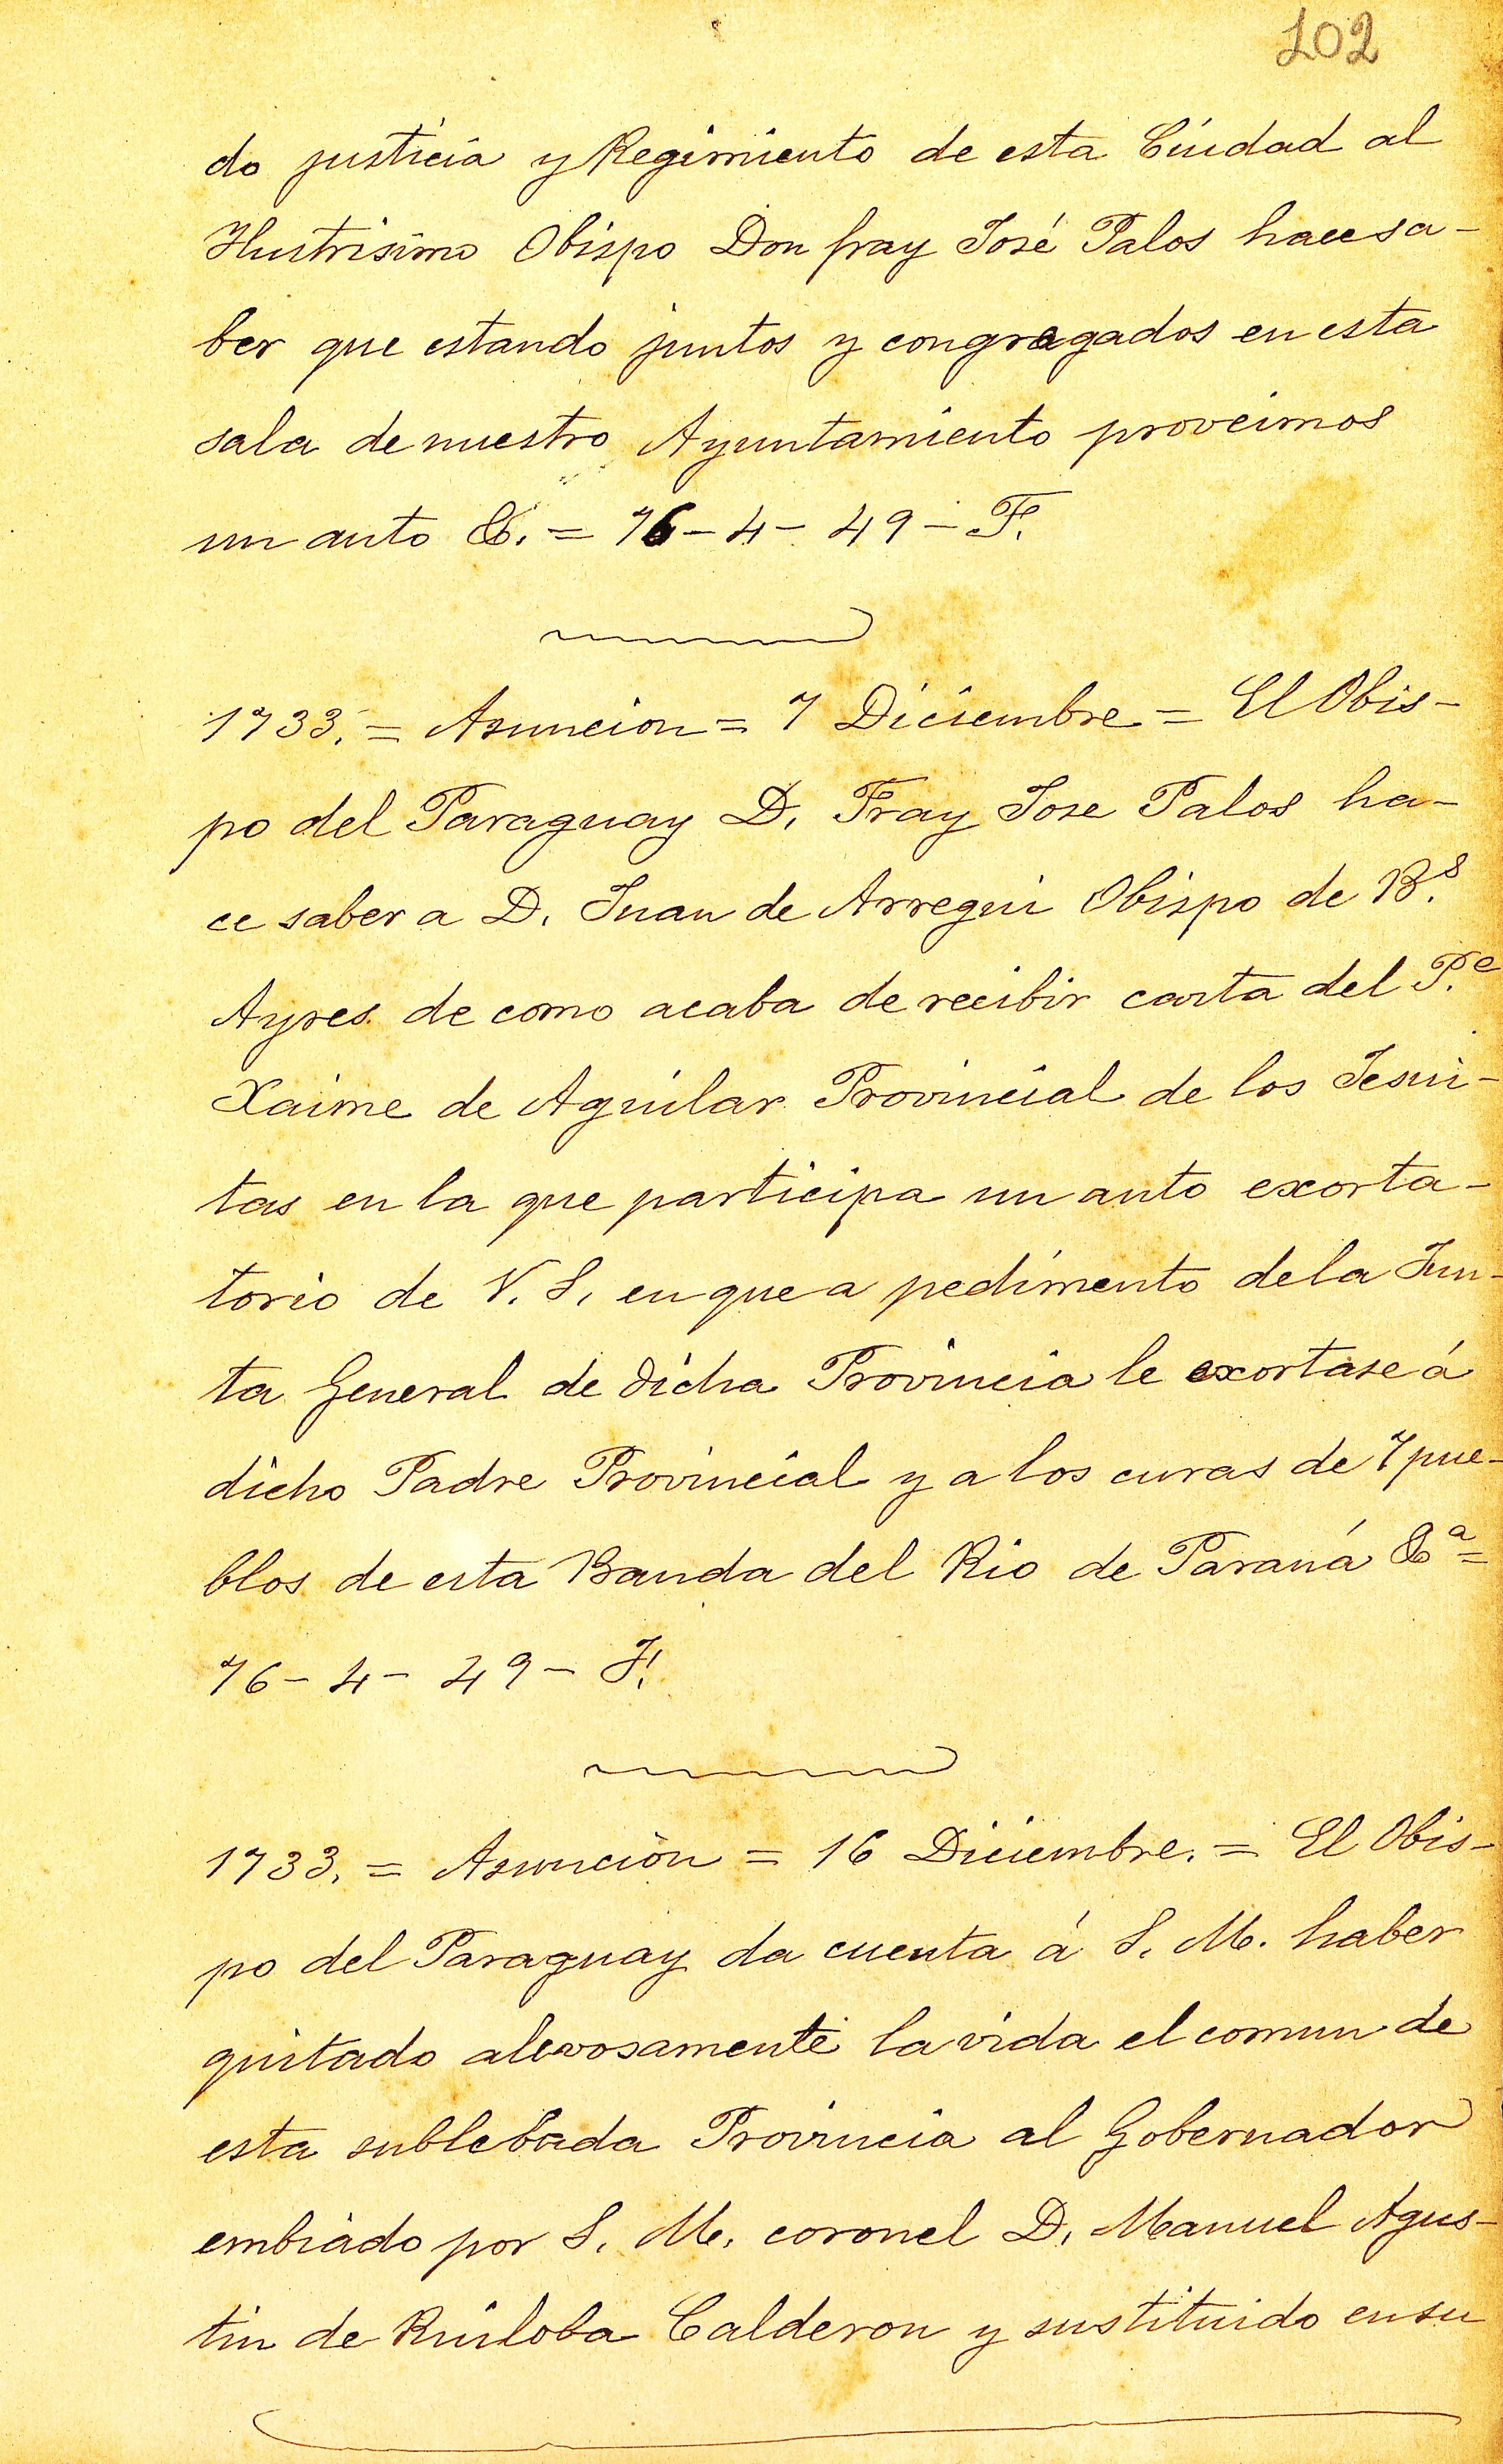 102
do justicia y Regimiento de esta Ciudad al
Ilustrisimo Obispo Don fray José Palos hace sa-
ber que estando juntos y congregados en esta
sala de nuestro Ayuntamiento proveimos
un auto &. = 76 - 4 - 49 - F.
1733. = Asuncion = 7 Diciembre = El Obis-
po del Paraguay D. Fray Jose Palos ha-
ce saber a D. Juan de Arregui Obispo de B.s
Ayres de como acaba de recibir carta del P.e
Xaime de Aguilar Provincial de los Jesui-
tas en la que participa un auto exorta-
torio de V. S. en que a pedimento de la Jun-
ta General de dicha Provincia le exortase á
dicho Padre Provincial y a los curas de 7 pue-
blos de esta Banda del Rio de Paraná &a =
76 - 4 - 49 - F.
1733. = Asunción = 16 Diciembre. = El Obis-
po del Paraguay da cuenta á S. M. haber
quitado alevosamente la vida el comun de
esta sublebada Provincia al Gobernador
embiado por S. M. coronel D. Manuel Agus-
tin de Ruiloba Calderon y sustituido en su